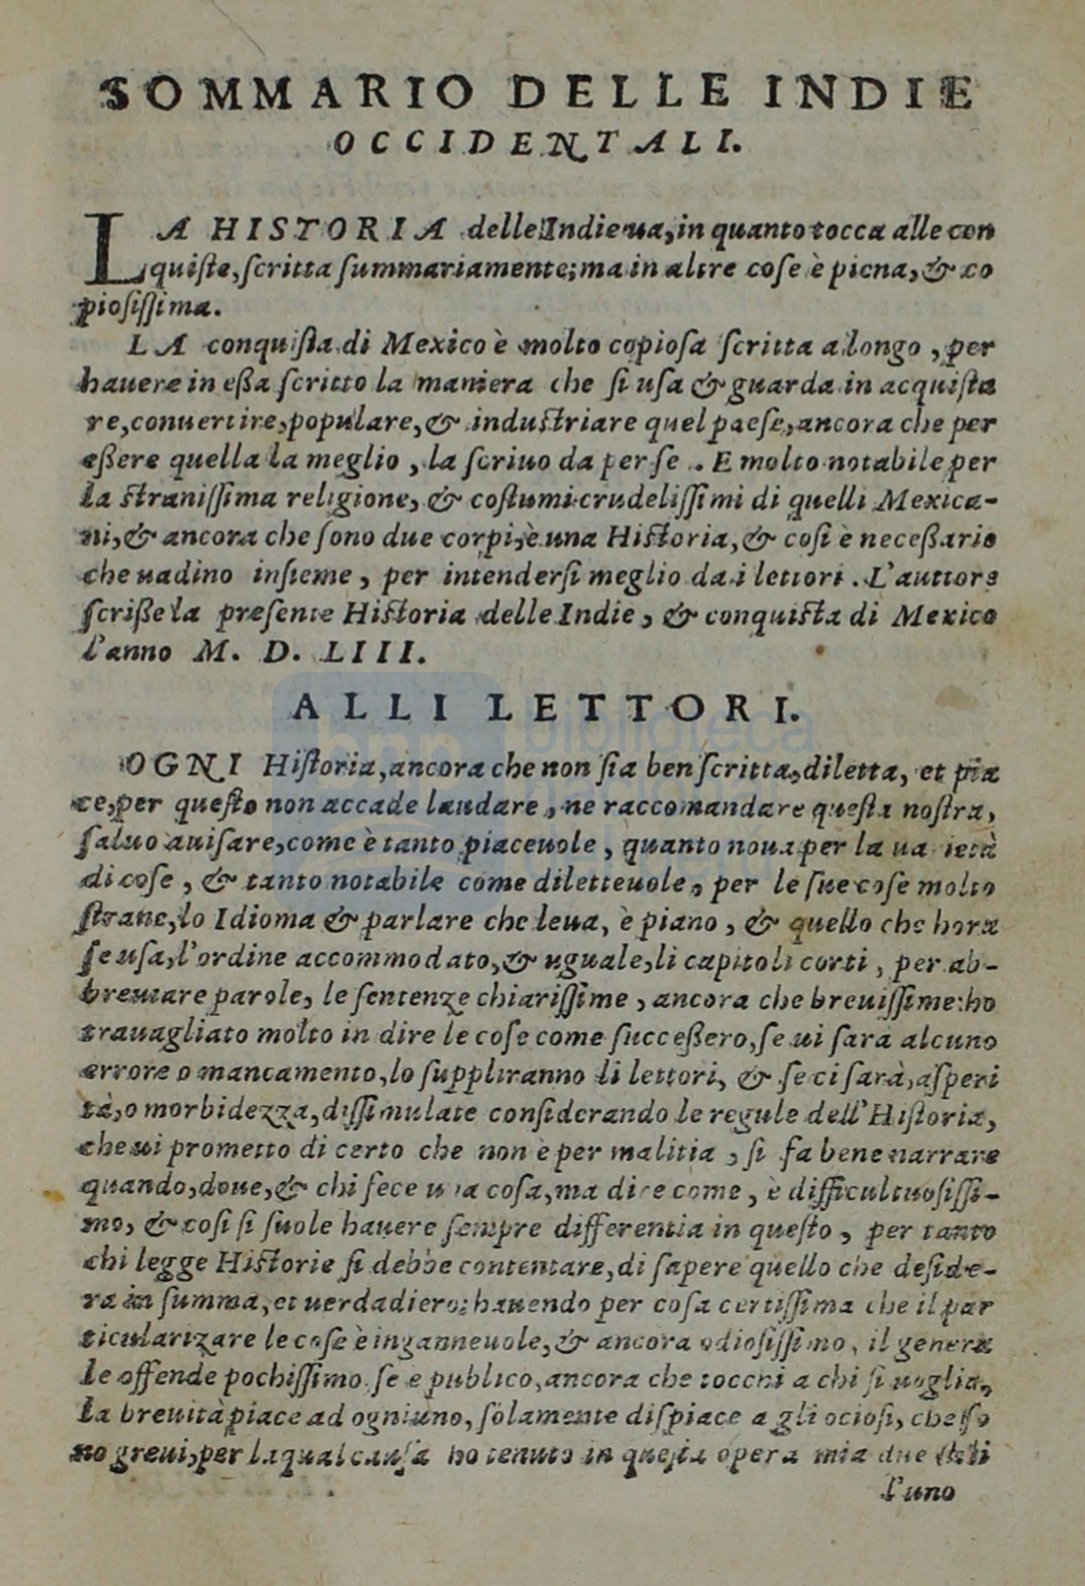 SOMMARIO DELLE INDIE
OCCIDENTALI.
LA HISTORIA delle Indie ua, in quanto tocca alle con
quiſte, ſcritta ſummariamente; ma in altre coſe è piena, & co
pioſiſſima.
LA conquiſta di Mexico è molto copioſa ſcritta a longo, per
hauere in eßa ſcritto la maniera che ſi uſa & guarda in acquiſta
re, conuertire, populare, & induſtriare quel paeſe, ancora che per
eßere quella la meglio, la ſcriuo da per ſe. E molto notabile per
la ſtraniſſima religione, & coſtumi crudeliſſimi di quelli Mexica-
ni, & ancora che ſono due corpi, è una Hiſtoria, & coſi è neceßario
che uadino inſieme, per intenderſi meglio da i lettori. L'auttore
ſcriße la preſente Hiſtoria delle Indie, & conquiſta di Mexico
l'anno M. D. LIII.
ALLI LETTORI.
OGNI Hiſtoria, ancora che non ſia ben ſcritta, diletta, et pia
ce, per queſto non accade laudare, ne raccomandare queſta noſtra,
ſaluo auiſare, come è tanto piaceuole, quanto noua per la ua ietà
di coſe, & tanto notabile come diletteuole, per le ſue coſe molto
ſtrane, lo Idioma & parlare che leua, è piano, & quello che hora
ſe uſa, l'ordine accommodato, & uguale, li capitoli corti, per ab-
breuiare parole, le ſentenze chiariſſime, ancora che breuiſſime: ho
trauagliato molto in dire le coſe come ſucceßero, ſe ui ſarà alcuno
errore o mancamento, lo ſuppliranno li lettori, & ſe ci ſarà, aſperi
tà, o morbidezza, diſſimulate conſiderando le regule dell'Hiſtoria,
che ui prometto di certo che non è per malitia, ſi fa bene narrare
quando, doue, & chi fece una coſa, ma dire come, è difficultuoſiſſi-
mo, & coſi ſi ſuole hauere ſempre differentia in queſto, per tanto
chi legge Hiſtorie ſi debbe contentare, di ſapere quello che deſide-
ra in ſumma, et uerdadiero; hauendo per coſa certiſſima che il par
ticularizare le coſe è inganneuole, & ancora odioſiſſimo, il genera
le offende pochiſſimo ſe è publico, ancora che tocchi a chi ſi uoglia,
la breuità piace ad ogniuno, ſolamente diſpiace a gli ocioſi, che ſo
no greui, per laqual cauſa ho tenuto in queſta opera mia due ſtili
l'uno
biblioteca